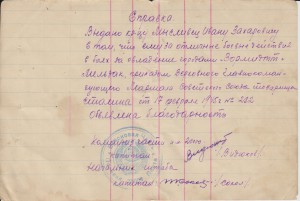 Справка
Выдано кр-цу Мыслевец Ивану Захаровичу
в том, что ему за отличные боевые действия
в боях за овладение городами "Вормдитт"
Мельзак, приказом Верховного Главнокоман-
дующего Маршала Советского Союза товарища
Сталина от 17 февраля 1945 г № 282
объявлена благодарность
капитан
Начальник штаба
капитан